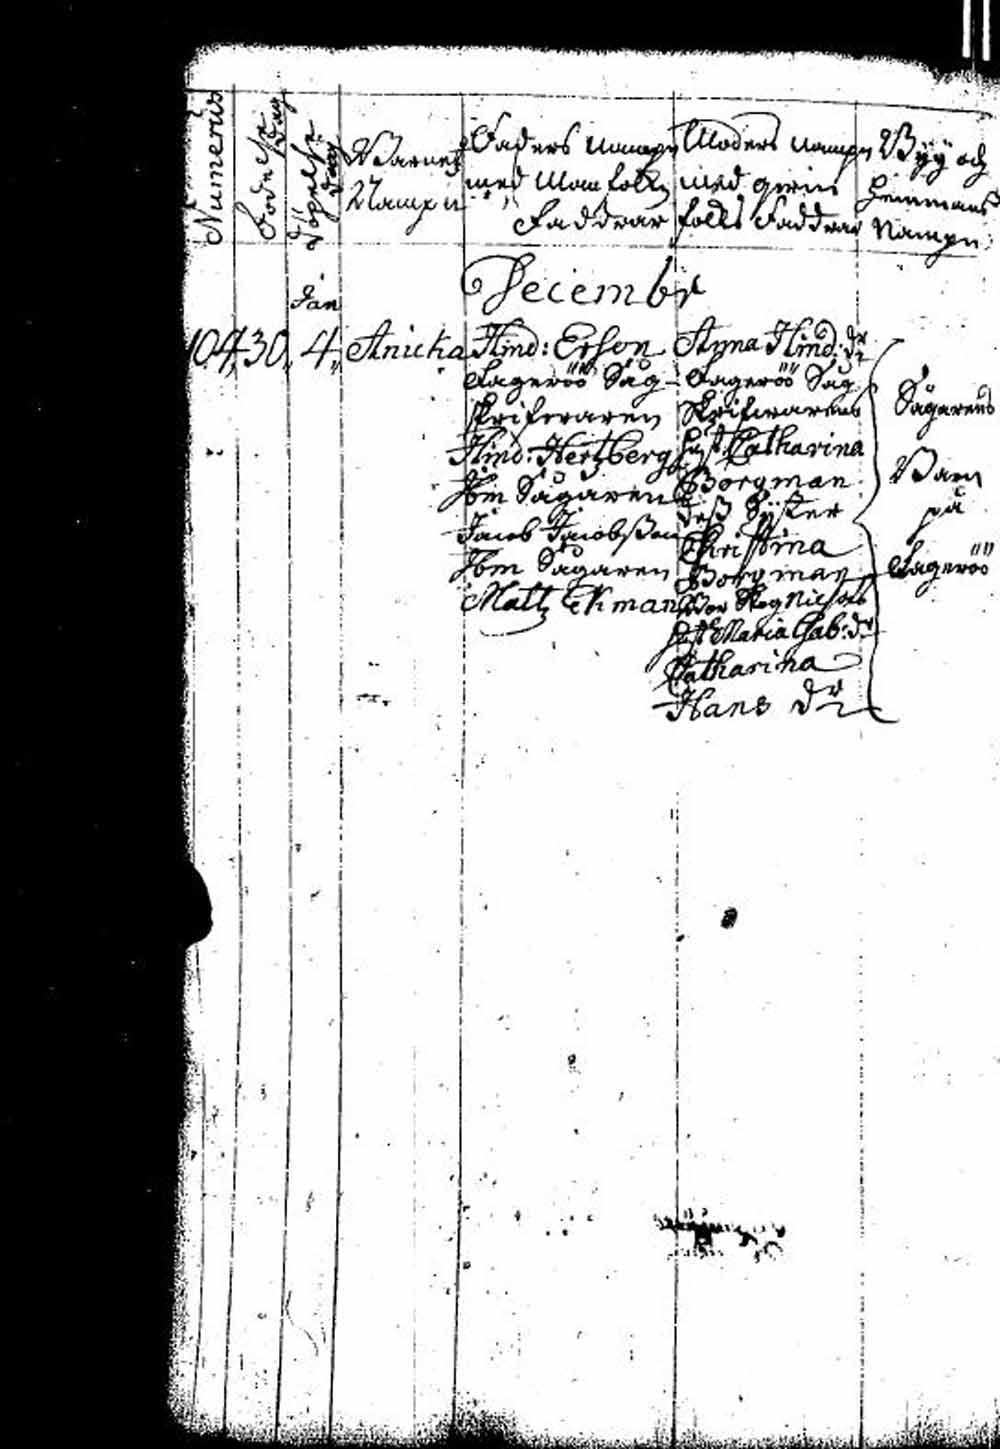 Numerus
Födelse dag
Döpelse dag
Barnets Nampn
Faders nampn
med Manfolks
Faddrar
Moders nampn
med qwins
folks Faddrar
Byÿ och
Hemmans
Nampn
Decembr
Jan
104, 30,, 4,, Anicka
Hind: Erson
Fageröö Såg-
skrifwaren
Hind: Hertberg
Hm Sågaren
Jacob Jacobsson
Hm Sågaren
Matts Ekman
Anna Hind: dr
Fageröö Såg
Skrifwarens
hust Catharina
Borgman
dess Syster
Christina
Borgman
hust Maria Gab: dr
Catharina
Hans dr
Sågarens
Barn
på
Fageröö